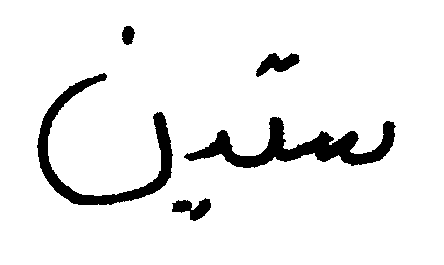 ستين